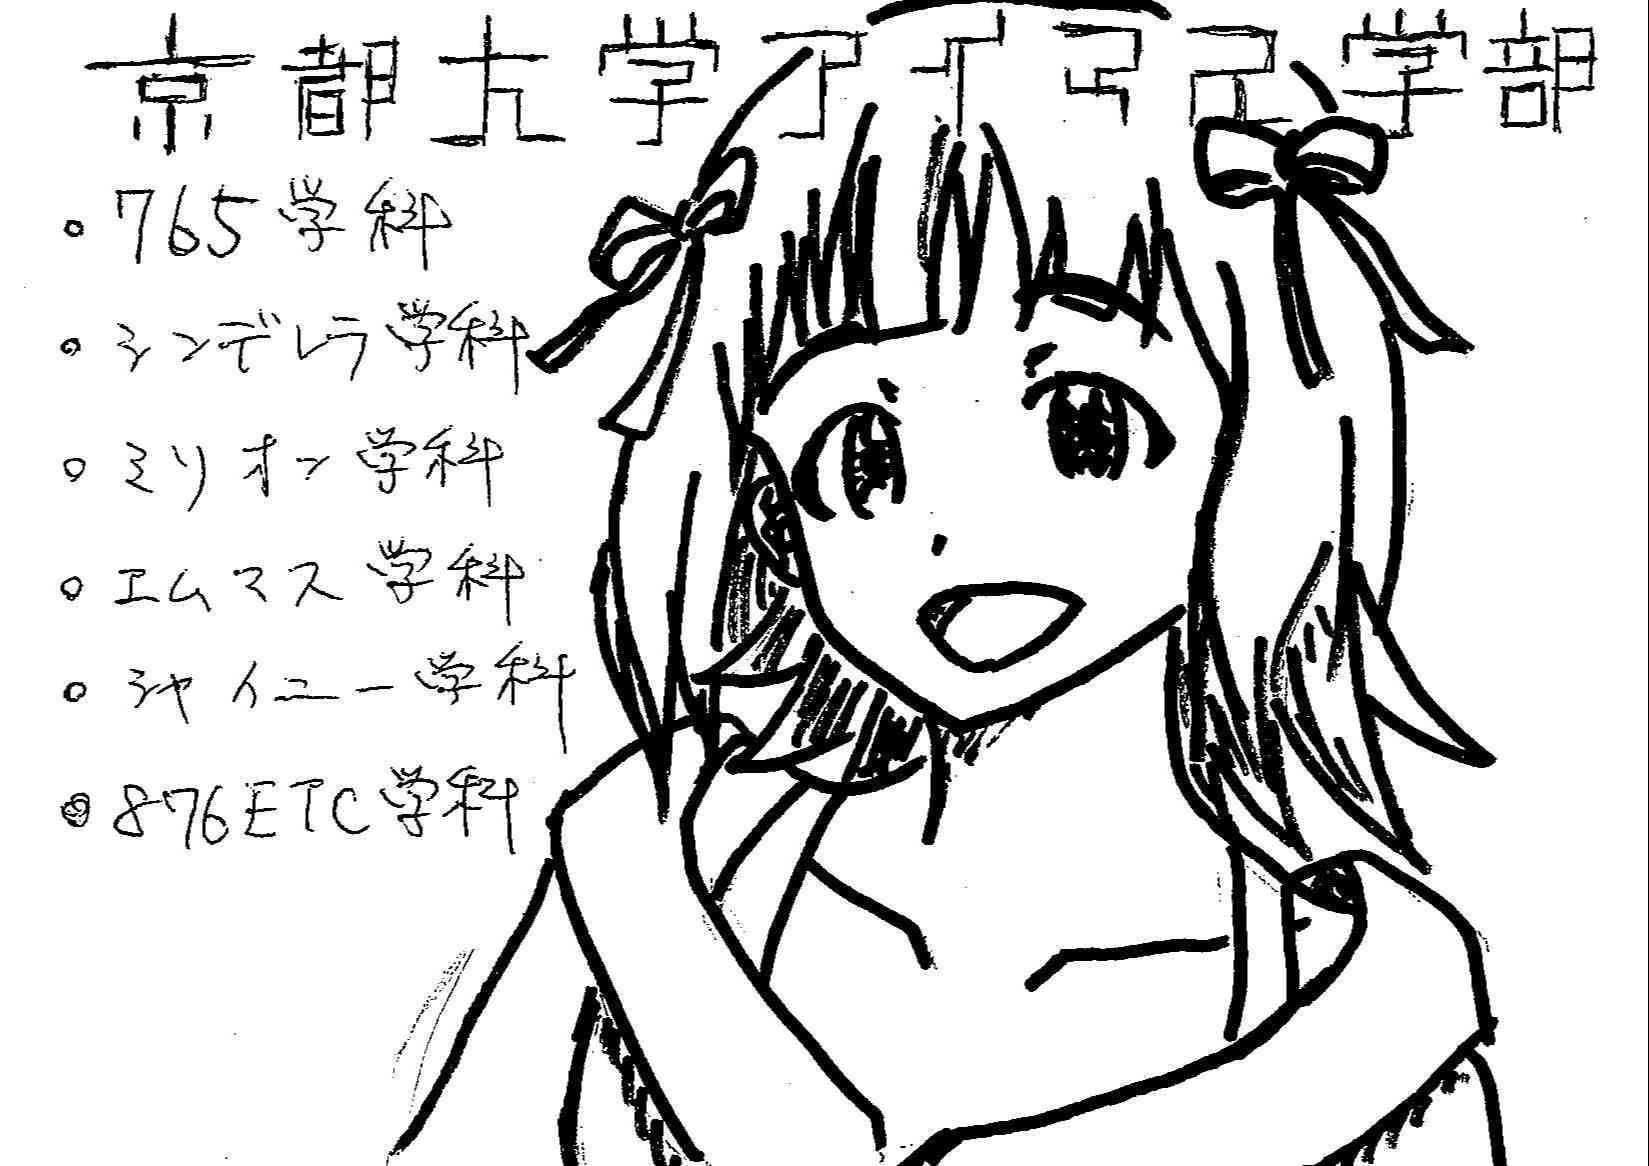 京都大学アイマス学部
・765学科
・シンデレラ学科
・ミリオン学科
・エムマス学科
・シャイニー学科
・876ETC学科